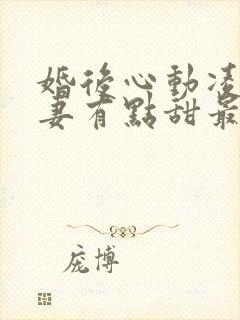 婚後心動凌
妻有點甜最
庞博